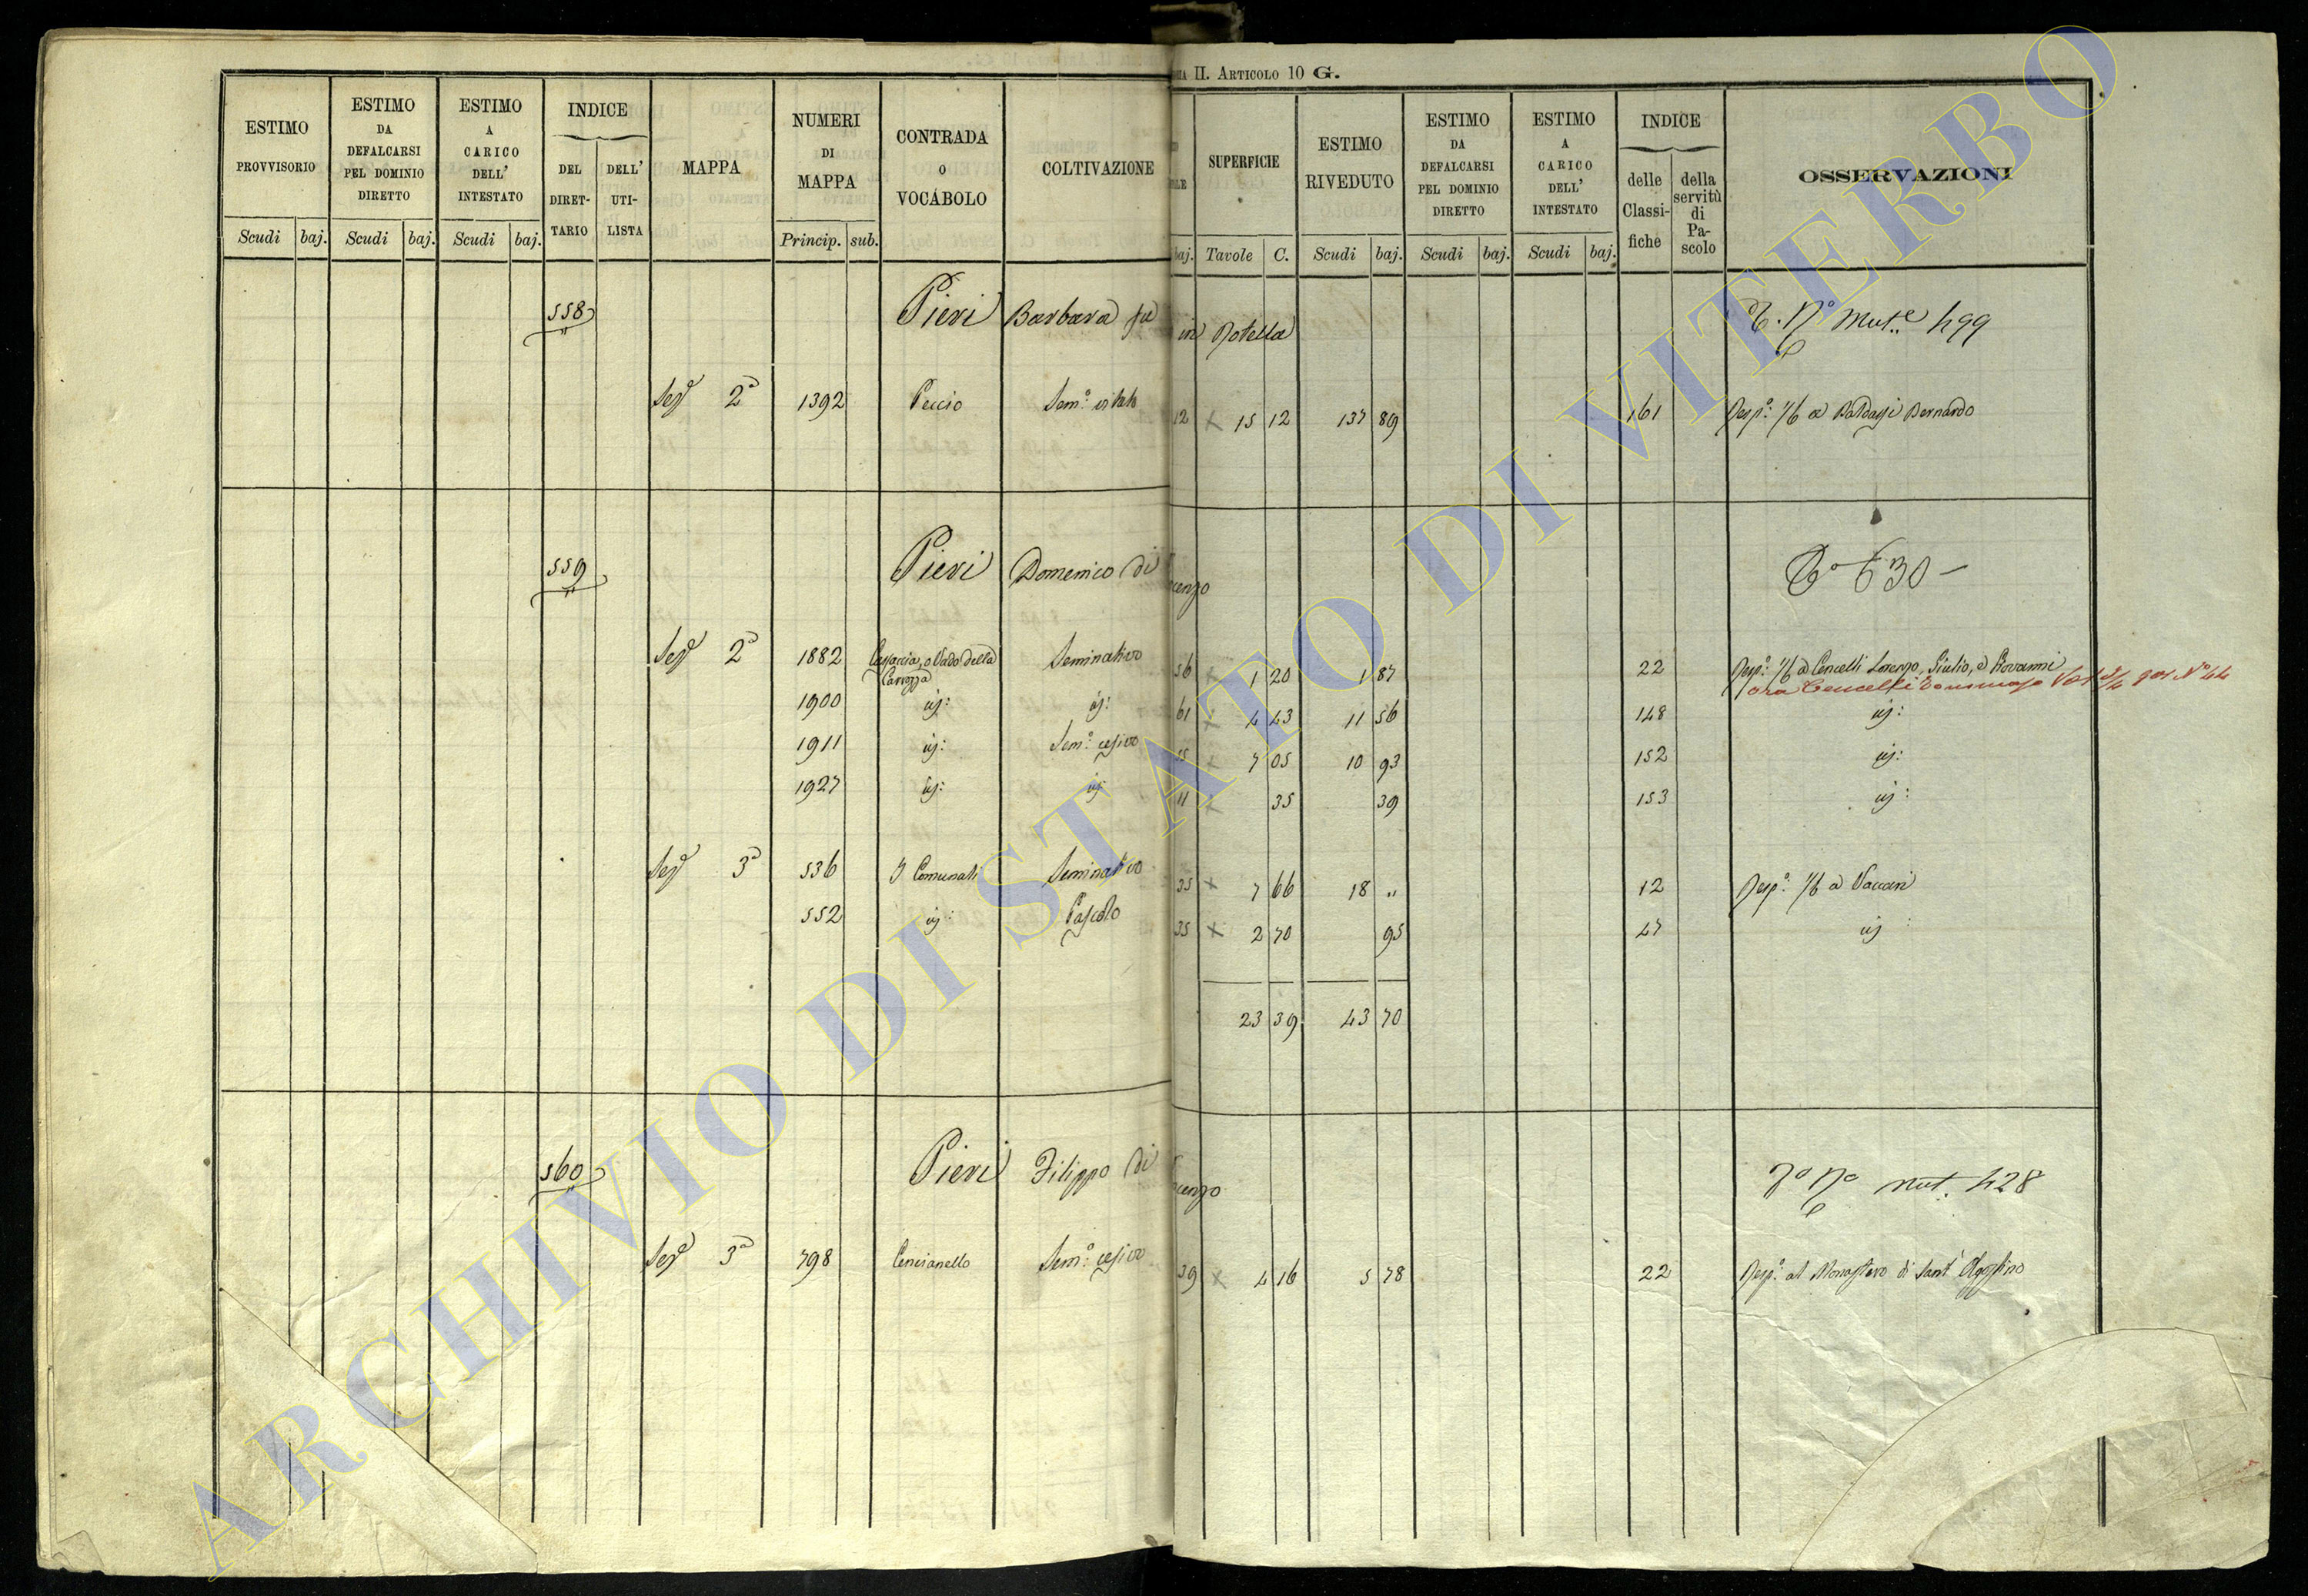 II. Articolo 10 G.
ESTIMO PROVVISORIO
Scudi baj.
ESTIMO DA DEFALCARSI PEL DOMINIO DIRETTO
Scudi baj.
ESTIMO A CARICO DELL' INTESTATO
Scudi baj.
INDICE
DEL DIRET-TARIO
DELL' UTI-LISTA
MAPPA
NUMERI DI MAPPA
Princip. sub.
CONTRADA O VOCABOLO
COLTIVAZIONE
baj.
SUPERFICIE
Tavole C.
ESTIMO RIVEDUTO
Scudi baj.
ESTIMO DA DEFALCARSI PEL DOMINIO DIRETTO
Scudi baj.
ESTIMO A CARICO DELL' INTESTATO
Scudi baj.
INDICE
delle Classi-fiche
della servitù di Pa-scolo
OSSERVAZIONI
558 Pieri Barbara fu in Notella Mut.e 499
2a 1392 Peccio Sem.o vitato 12 15 12 137 89 161 Resp.a 1/6 a Baldassi Bernardo
559 Pieri Domenico di 630
2a 1882 o Vado della Seminativo 56 1 20 1 87 22 Resp.a 1/6 a Cencelli Lorenzo, Giulio, e Giovanni
Carrozza ora Cencelli Tommaso No 44
1900 id: id: 61 4 43 11 56 148 id:
1911 id: Sem.o cesivo 55 7 05 10 93 152 id:
1927 id: id 11 35 39 153 id:
3a 536 I Comunali Seminativo 35 7 66 18 " 12 Resp.a 1/6 a Vaccari
552 id: Pascolo 35 2 70 95 47 id
23 39 43 70
560 Pieri Filippo di mut. 428
3a 798 Cencianello Sem.o cesivo 39 4 16 5 78 22 Resp.a al Monastero di Sant' Agostino
ARCHIVIO DI STATO DI VITERBO